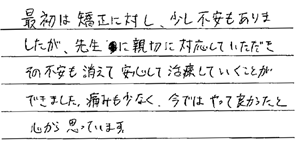 最初は矯正に対し、少し不安もありま
したが、先生に親切に対応していただき
その不安も消えて安心して治療していくことが
できました。痛みも少なく、今ではやって良かったと
心から思っています。